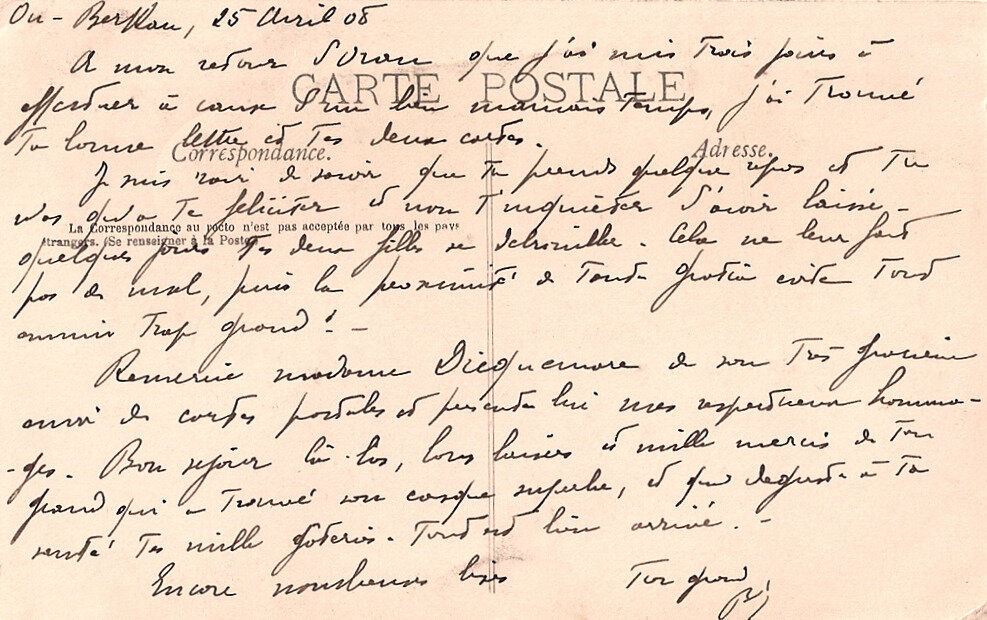 25 Avril 08
A mon retour d'Oran que j'ai mis trois jours à
CARTE POSTALE
effectuer à cause d'un bien mauvais temps, j'ai trouvé
ta bonne lettre et tes deux cartes.
Correspondance.
Adresse.
Je suis ravi de savoir que tu prends quelque repos et tu
n'as qu'à te féliciter et non t'inquiéter d'avoir laissé
La Correspondance au recto n'est pas acceptée par tous les pays
étrangers. (Se renseigner à la Poste)
quelques jours tes deux filles se débrouiller. Cela ne leur fait
pas de mal, puis la proximité de Tante évite tout
ennui trop grand ! -
Remercie madame Dicquemare de son très gracieux
envoi de cartes postales et présente lui mes respectueux homma-
-ges. Bon séjour là-bas, bons baisers et mille mercis de ton
grand qui a trouvé son casque superbe, et qui déguste à ta
santé tes mille gâteries. Tout est bien arrivé. -
Encore nombreuses bises Ton grand